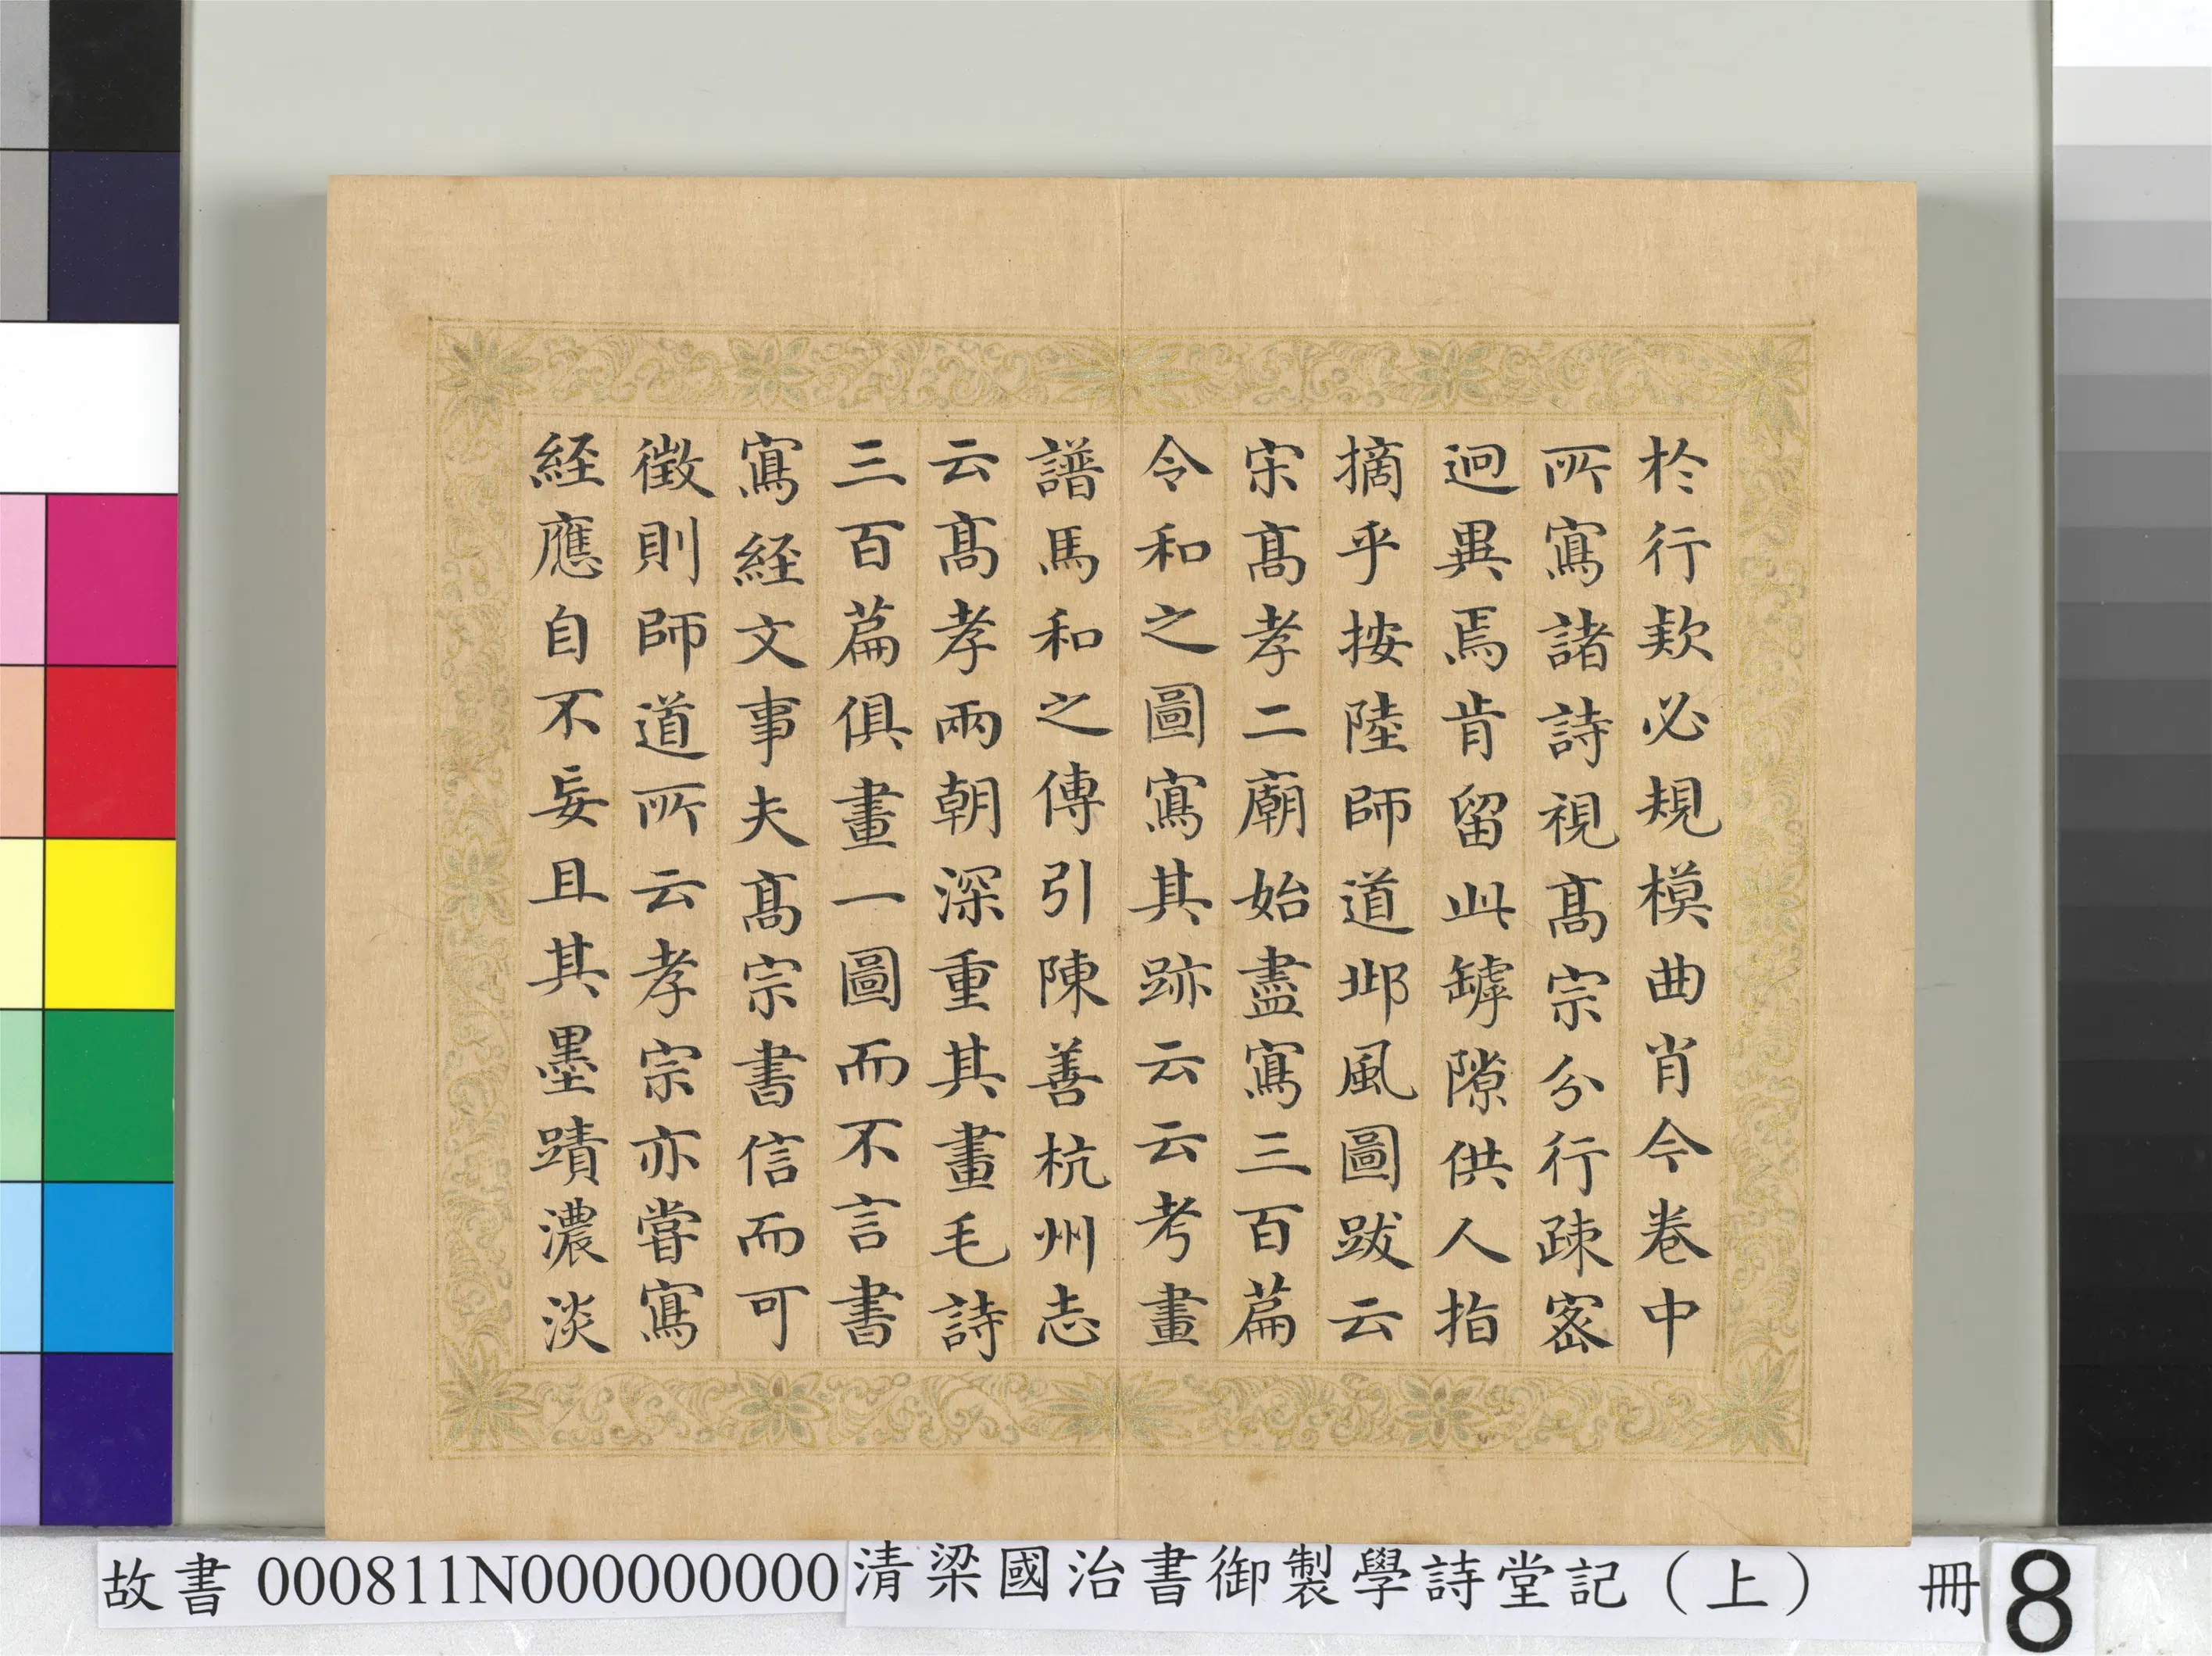 於行款必規模曲肖今卷中
所寫諸詩視髙宗分行疎宻
迥異焉肯留此罅隙供人指
摘乎按陸師道邶風圖跋云
宋髙孝二廟始盡寫三百篇
令和之圖寫其跡云云考畫
譜馬和之傳引陳善杭州志
云髙孝兩朝深重其畫毛詩
三百篇俱畫一圖而不言書
寫經文事夫髙宗書信而可
徵則師道所云孝宗亦嘗寫
經應自不妄且其墨蹟濃淡
故書 000811N000000000 清梁國治書御製學詩堂記（上） 冊 8